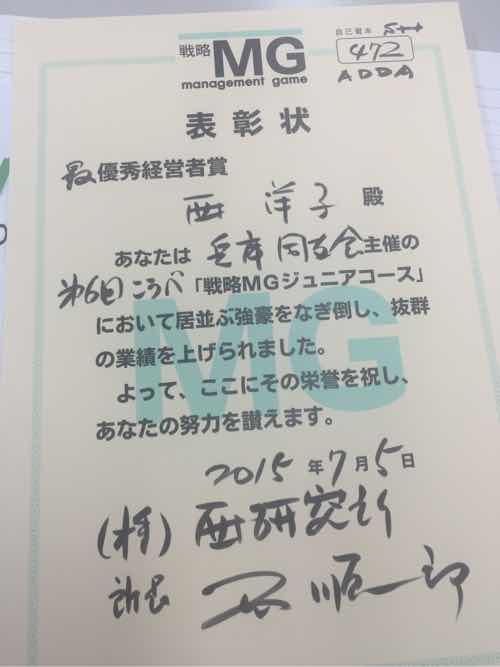 戦略MG
management game
自己資本
472
ADDA
表彰状
最優秀経営者賞
西 洋子 殿
あなたは 主催の
第6回こうべ「戦略MGジュニアコース」
において居並ぶ強豪をなぎ倒し、抜群
の業績を上げられました。
よって、ここにその栄誉を祝し、
あなたの努力を讃えます。
2015年7月5日
(株)西研究所
所長 西 順一郎